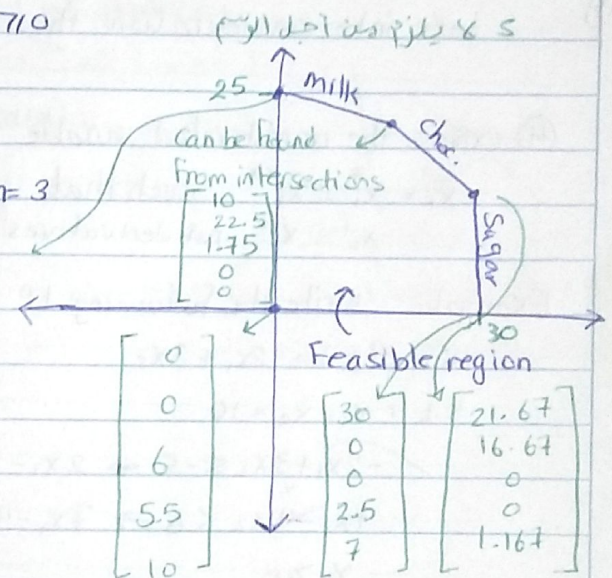 710
لا يلزم من اجل الرسم S
25
milk
choc.
can be found
from intersections
n= 3
10
22.5
1.75
0
0
Sugar
30
Feasible region
0
0
6
5.5
10
30
0
0
2.5
7
21.67
16.67
0
0
1.167